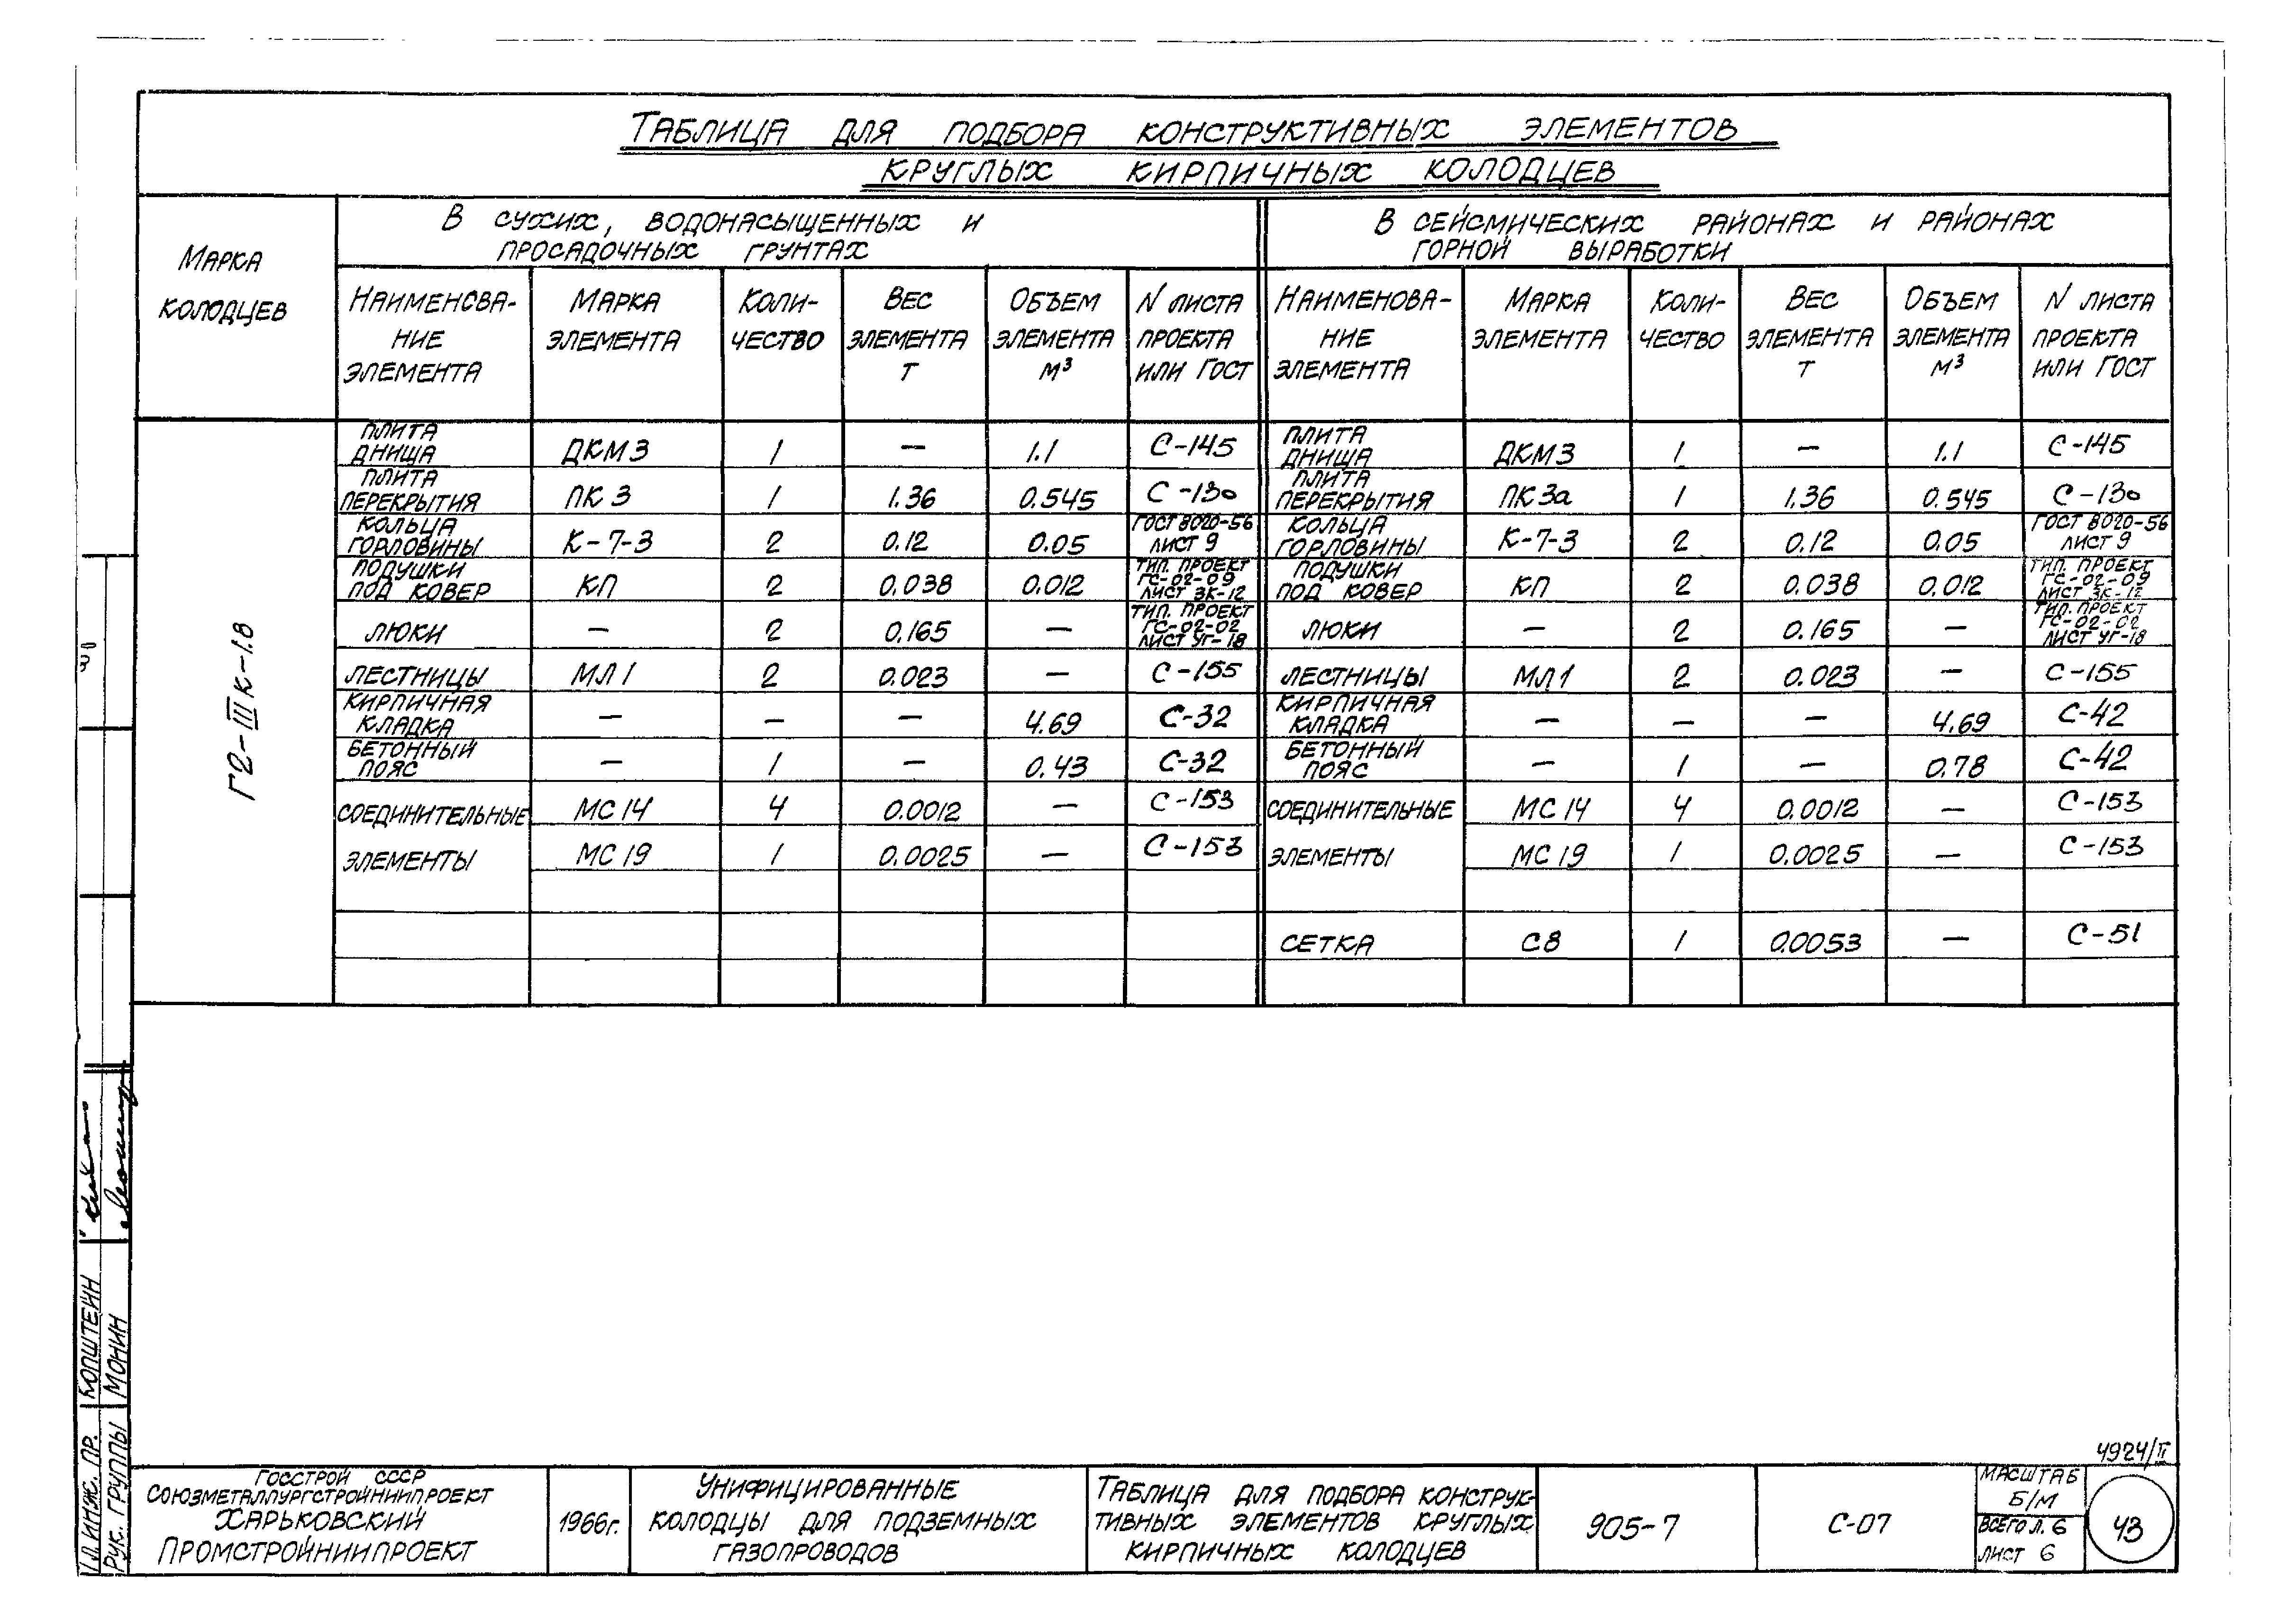 Таблица для подбора конструктивных элементов
круглых кирпичных колодцев
Марка колодцев
В сухих, водонасыщенных и
просадочных грунтах
В сейсмических районах и районах
горной выработки
Наименова-ние элемента | Марка элемента | Коли-чество | Вес элемента т | Объем элемента м³ | N листа проекта или Гост | Наименова-ние элемента | Марка элемента | Коли-чество | Вес элемента т | Объем элемента м³ | N листа проекта или Гост
Г2-III к-1.8
плита днища | ДКМ3 | 1 | — | 1.1 | С-145 | плита днища | ДКМ3 | 1 | — | 1.1 | С-145
плита перекрытия | ПК3 | 1 | 1.36 | 0.545 | С-130 | плита перекрытия | ПК3а | 1 | 1.36 | 0.545 | С-130
кольца горловины | К-7-3 | 2 | 0.12 | 0.05 | Гост 8020-56 лист 9 | кольца горловины | К-7-3 | 2 | 0.12 | 0.05 | Гост 8020-56 лист 9
подушки под ковер | КП | 2 | 0.038 | 0.012 | тип. проект ГС-02-09 лист ЗК-12 | подушки под ковер | КП | 2 | 0.038 | 0.012 | тип. проект ГС-02-09 лист ЗК-12
люки | — | 2 | 0.165 | — | тип. проект ГС-02-02 лист УГ-18 | люки | — | 2 | 0.165 | — | тип. проект ГС-02-02 лист УГ-18
лестницы | МЛ1 | 2 | 0.023 | — | С-155 | лестницы | МЛ1 | 2 | 0.023 | — | С-155
кирпичная кладка | — | — | — | 4.69 | С-32 | кирпичная кладка | — | — | — | 4.69 | С-42
бетонный пояс | — | 1 | — | 0.43 | С-32 | бетонный пояс | — | 1 | — | 0.78 | С-42
соединительные | МС14 | 4 | 0.0012 | — | С-153 | соединительные | МС14 | 4 | 0.0012 | — | С-153
элементы | МС19 | 1 | 0.0025 | — | С-153 | элементы | МС19 | 1 | 0.0025 | — | С-153
сетка | С8 | 1 | 0.0053 | — | С-51
инж. пр. Копштейн
Рук. группы Монин
4924/II
Госстрой СССР
Союзметаллургстройниипроект
Харьковский
Промстройниипроект
1966г.
Унифицированные
колодцы для подземных
газопроводов
Таблица для подбора конструк-
тивных элементов круглых
кирпичных колодцев
905-7
С-07
Масштаб
Б/М
Всего л. 6
Лист 6
43